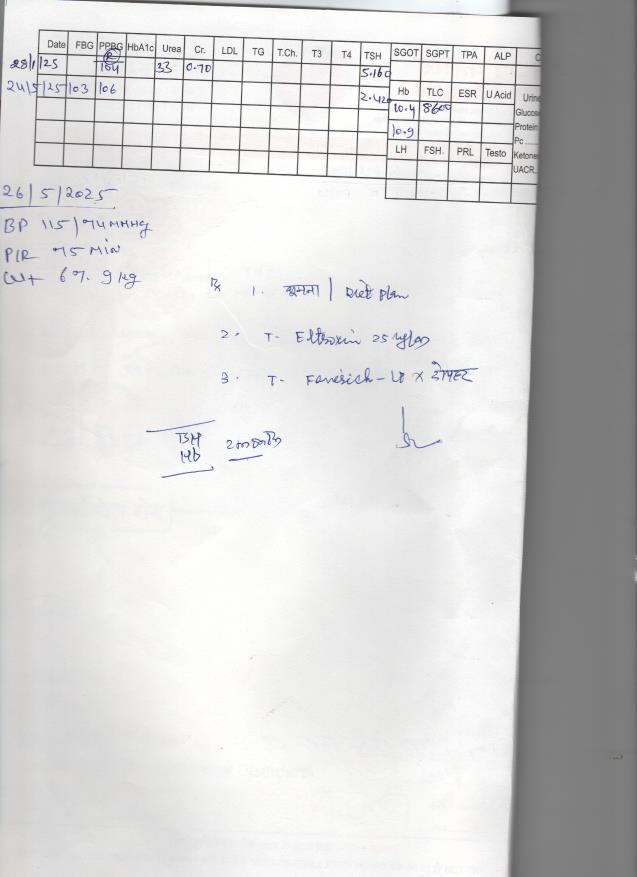 Date FBG PPBG HbA1c Urea Cr. LDL TG T.Ch. T3 T4 TSH SGOT SGPT TPA ALP
28/1/25 (R) 104 33 0.70 5.160
24/5/25 103 106 2.420
Hb TLC ESR U Acid Urine
10.4 8600 Glucose
10.9 Protein
Pc
LH FSH. PRL Testo Ketone
UACR..
26/5/2025
BP 115/74 MMHg
P/R 75 Min
Wt 67.9 kg
Rx 1. घूमना / Diet Plan
2. T. Eltroxin 25
3. T. x दोपहर
TSH
Hb